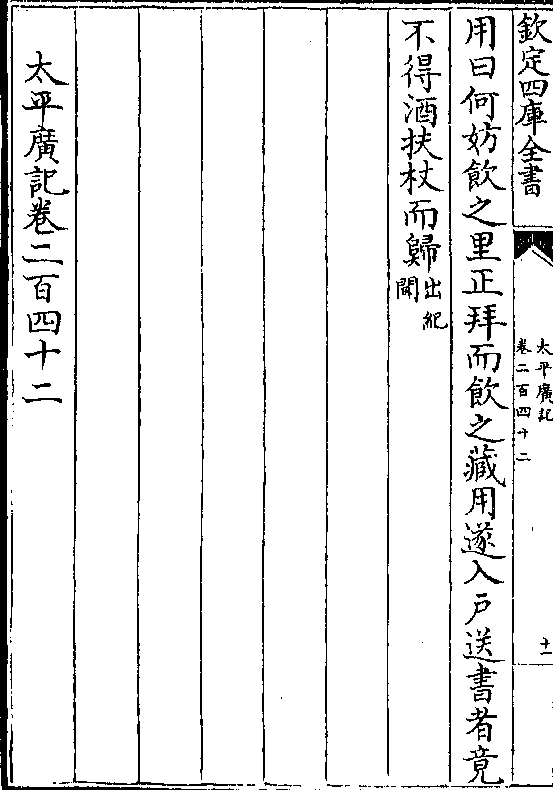 欽定四庫全書
太平廣記
卷二百四十二
十一
用曰何妨飲之里正拜而飲之藏用遂入戶送書者竟
不得酒扶杖而歸出紀
聞
太平廣記卷二百四十二